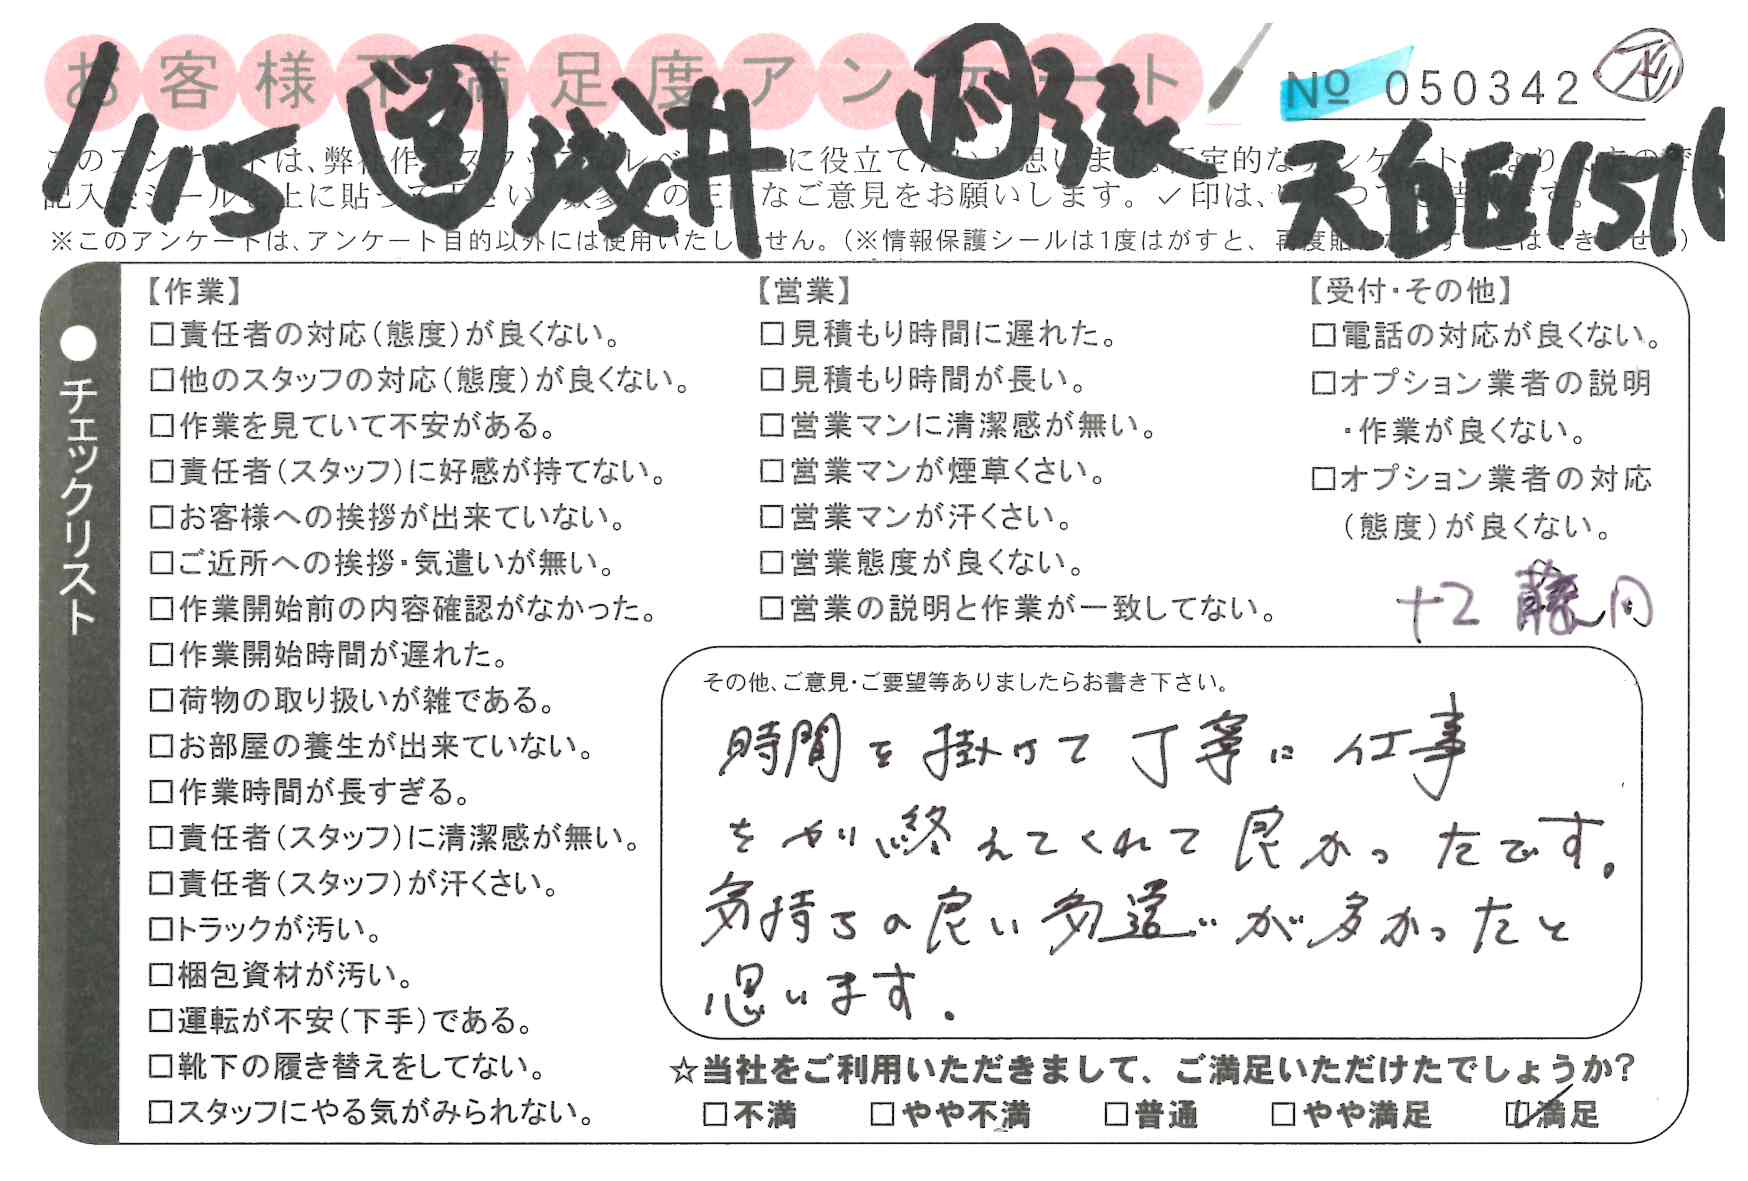 お客様不満足度アンケート
No 050342
1/15 浅井
天白区1516
※このアンケートは、アンケート目的以外には使用いたしません。(※情報保護シールは1度はがすと、再度貼
●チェックリスト
【作業】
□責任者の対応(態度)が良くない。
□他のスタッフの対応(態度)が良くない。
□作業を見ていて不安がある。
□責任者(スタッフ)に好感が持てない。
□お客様への挨拶が出来ていない。
□ご近所への挨拶・気遣いが無い。
□作業開始前の内容確認がなかった。
□作業開始時間が遅れた。
□荷物の取り扱いが雑である。
□お部屋の養生が出来ていない。
□作業時間が長すぎる。
□責任者(スタッフ)に清潔感が無い。
□責任者(スタッフ)が汗くさい。
□トラックが汚い。
□梱包資材が汚い。
□運転が不安(下手)である。
□靴下の履き替えをしてない。
□スタッフにやる気がみられない。
【営業】
□見積もり時間に遅れた。
□見積もり時間が長い。
□営業マンに清潔感が無い。
□営業マンが煙草くさい。
□営業マンが汗くさい。
□営業態度が良くない。
□営業の説明と作業が一致してない。
【受付・その他】
□電話の対応が良くない。
□オプション業者の説明
・作業が良くない。
□オプション業者の対応
(態度)が良くない。
その他、ご意見・ご要望等ありましたらお書き下さい。
時間を掛けて丁寧に仕事
を 終えてくれて良かったです。
気持ちの良い 気遣いが多かったと
思います。
☆当社をご利用いただきまして、ご満足いただけたでしょうか?
□不満 □やや不満 □普通 □やや満足 ☑満足